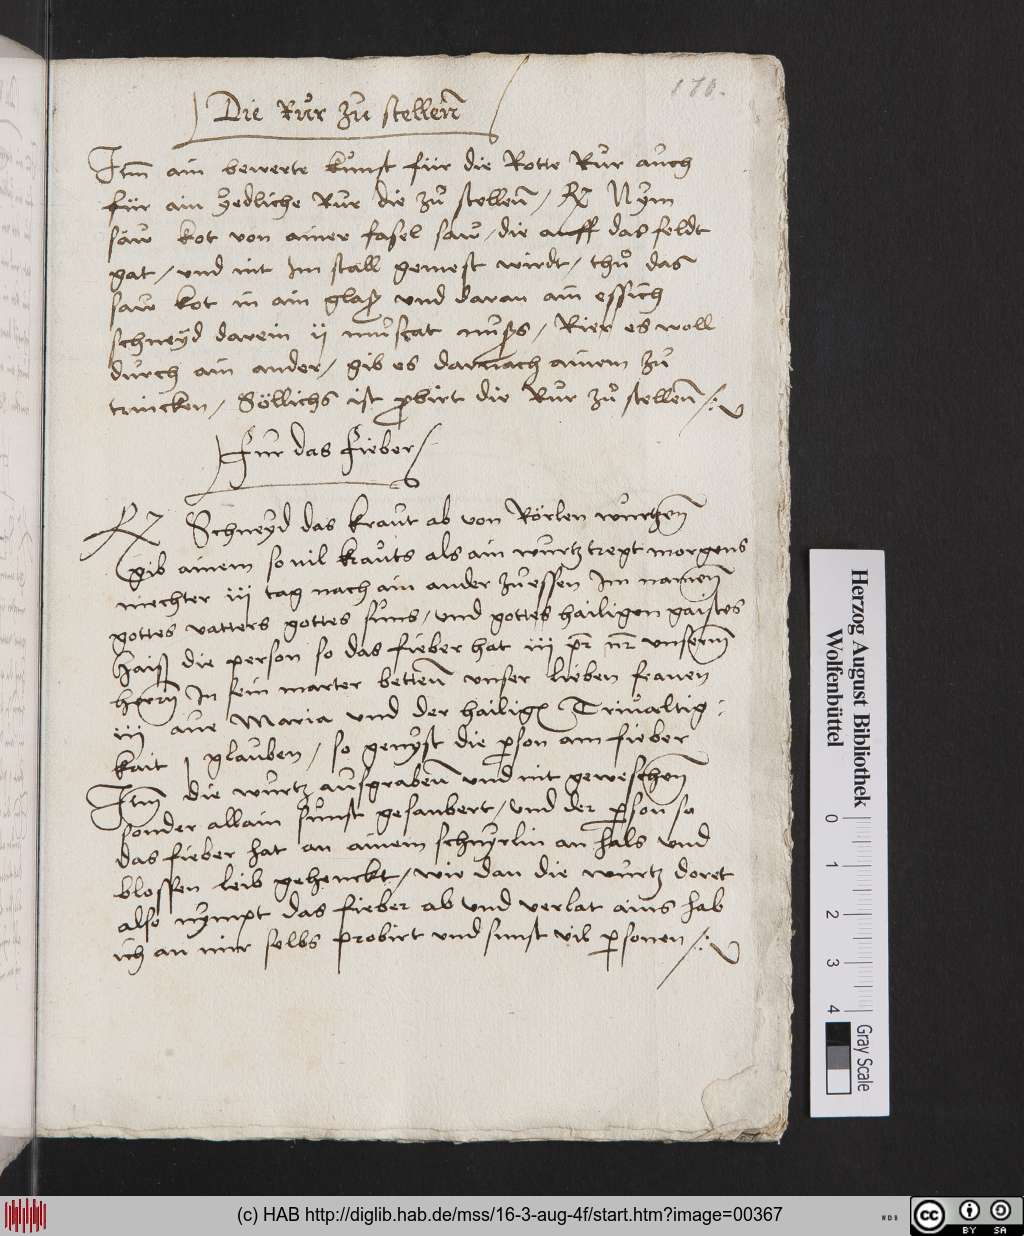 170.
Die Rur zu stellenn
Itm̄ ain bewerte kunst für die Rotte Rur auch
für ain yedliche Rur die zů stellenn / Rz Nym
säw kot von ainer fasel saw / die auff das feldt
gat / und nit Im stall gemest wirdt / thů das
saw kot in ain glaß und daran ain essich
schneyd darein ij muscat nuß / Rier es woll
durch ain ander / gib es darnach ainem zu
trincken / Söllichs ist probirt die Rur zů stellenn /
Fur das Fieber /
Rz Schneyd das kraut ab von Rörlen wurtzenn
gib ainem so vil krauts als ain wurtz tregt morgens
niechter iij tag nach ain ander zu essen Im namenn
gottes vatters gottes suns / und gottes hailigen gaistes
haiß die person so das fieber hat iij pr̄ nr̄ unserm
herrn In sein marter bettenn unser lieben frauen
iij ave Maria und der hailigen Triualtig:
kait j glauben / so genyst die person am fieber
Itm̄ die wurtz ausgrabenn und nit geweschenn
sonder allain sunst gesaubert / und der person so
das fieber hat an ainem schnyrlin an hals und
blossen leib gehenckt / wie dan die wurtz doret
also nympt das fieber ab und verlat ains hab
ich an mir selbs probirt und sunst vil personen /
Herzog August Bibliothek
Wolfenbüttel
0 1 2 3 4
Gray Scale
(c) HAB http://diglib.hab.de/mss/16-3-aug-4f/start.htm?image=00367
WDB
cc BY SA